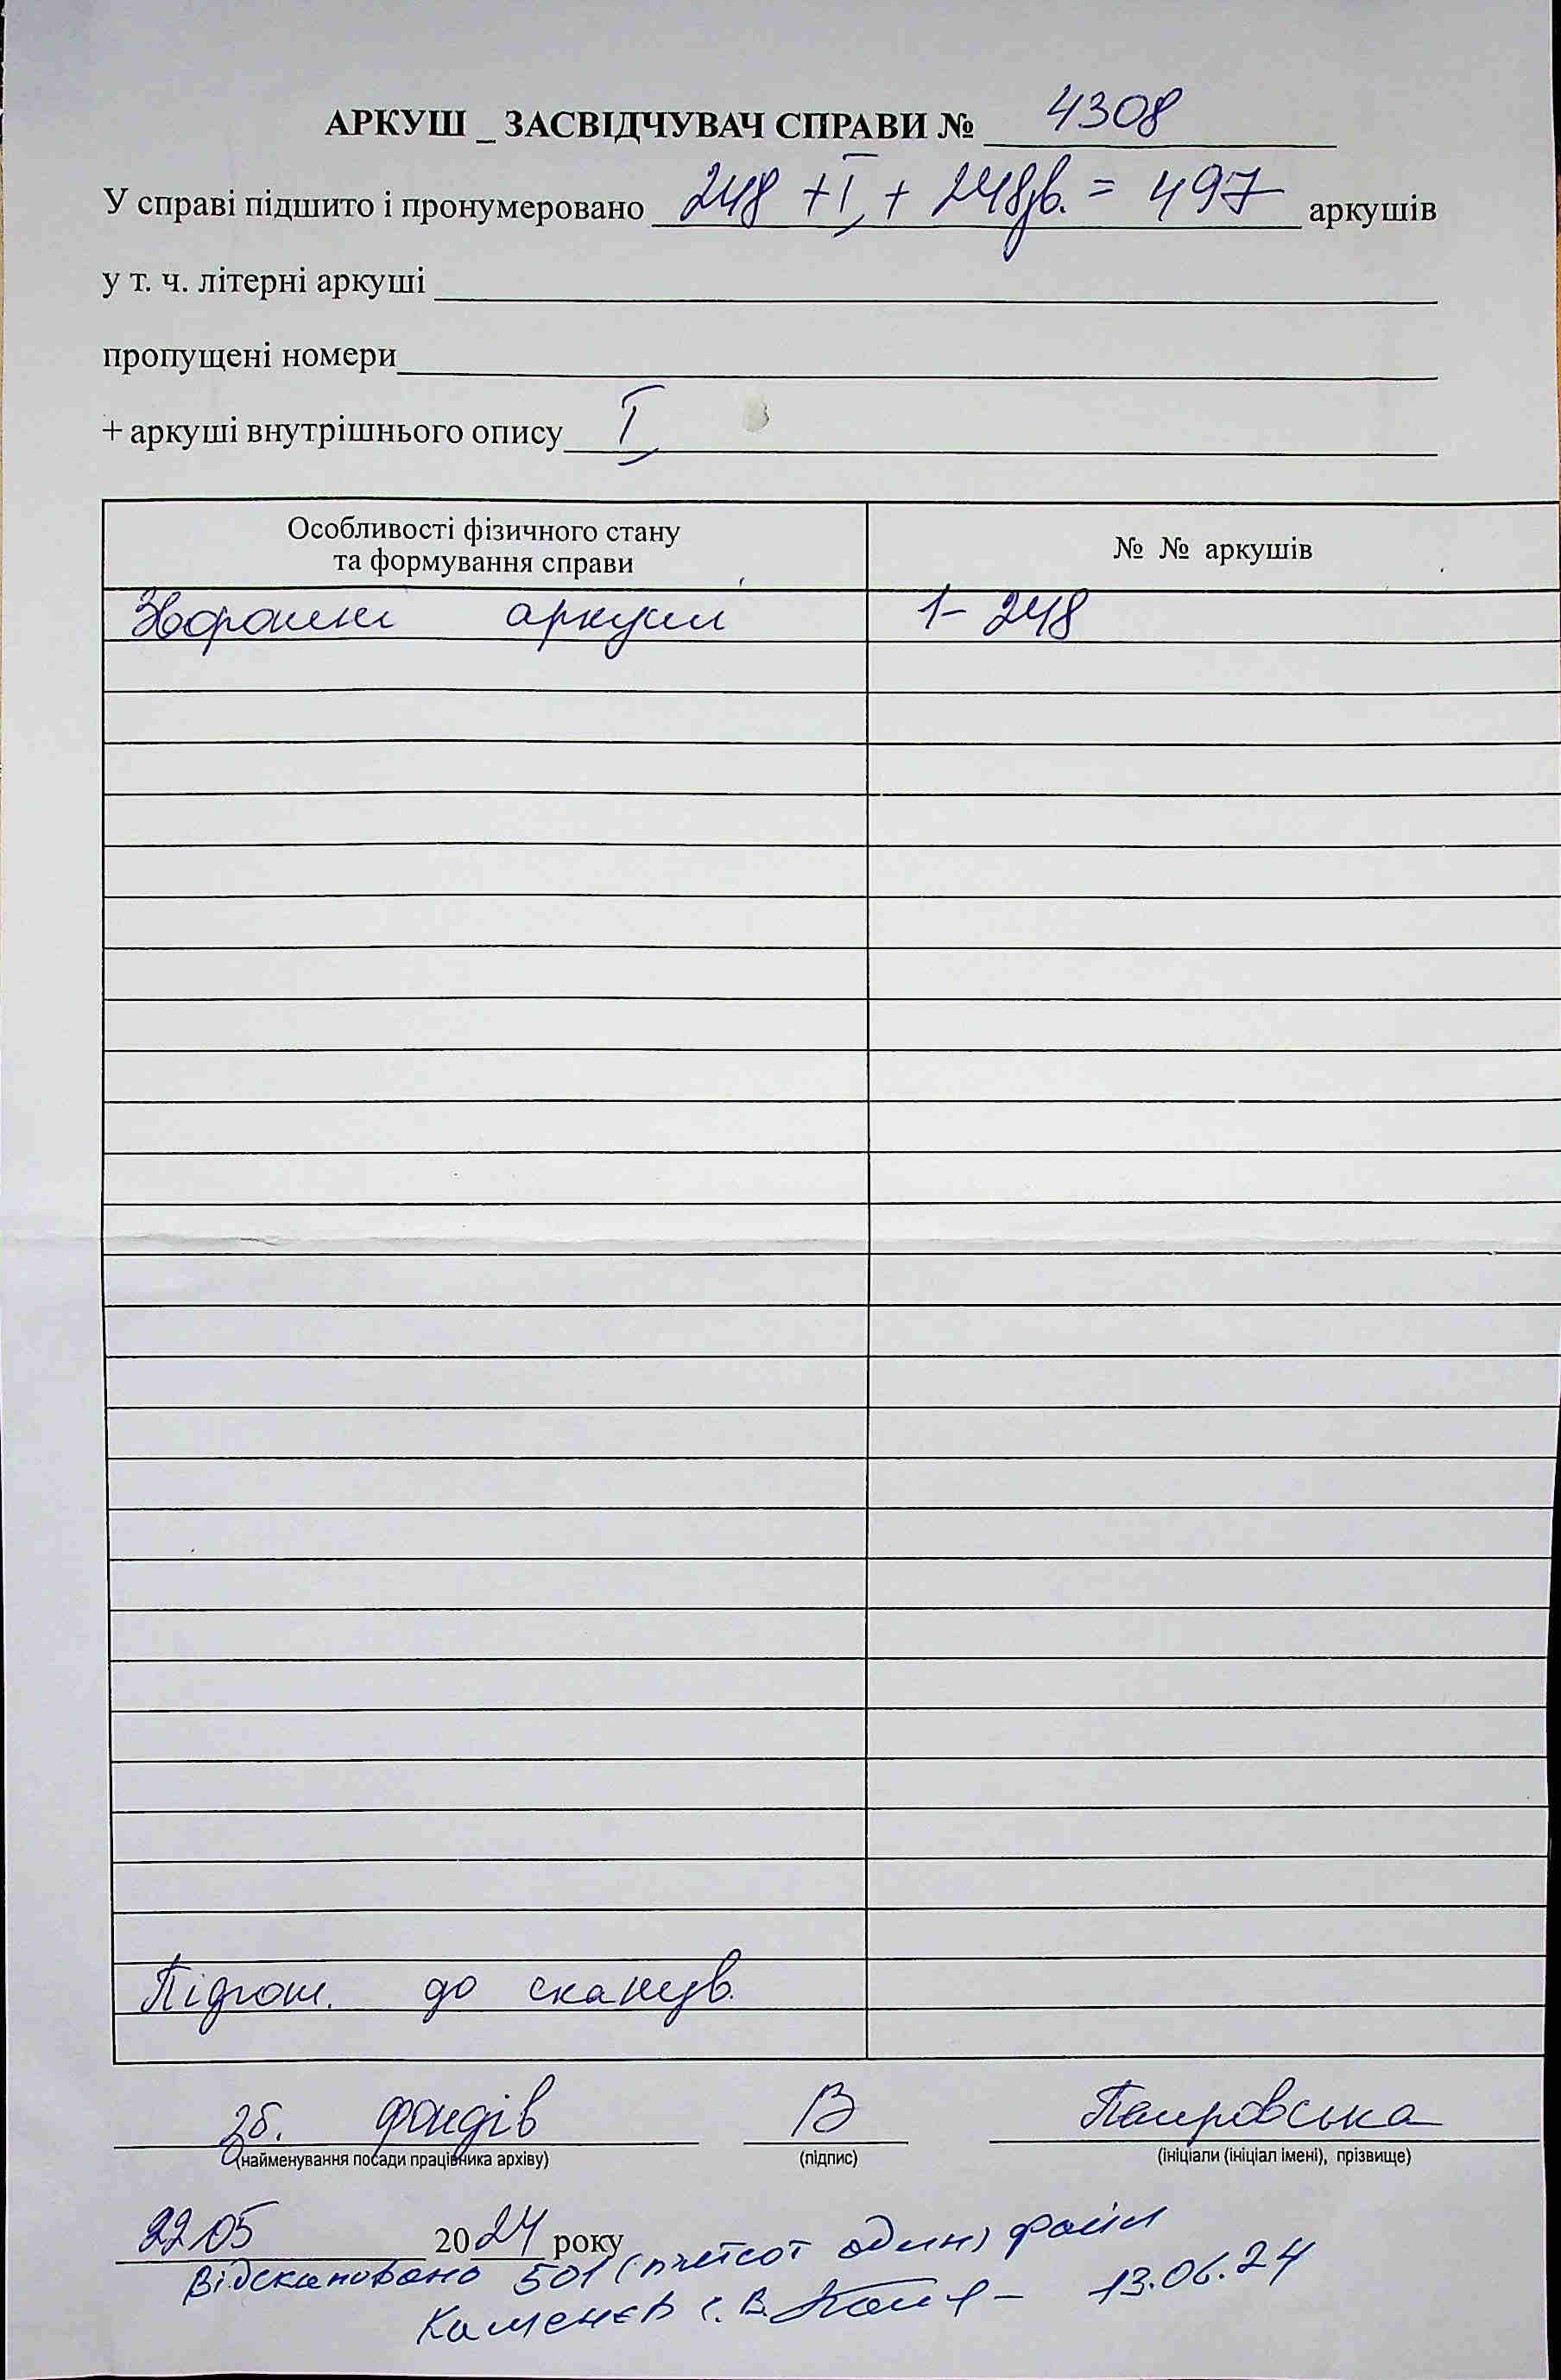 АРКУШ _ ЗАСВІДЧУВАЧ СПРАВИ № 4308
У справі підшито і пронумеровано 248 + I + 248зв. = 497 аркушів
у т. ч. літерні аркуші
пропущені номери
+ аркуші внутрішнього опису I
Особливості фізичного стану та формування справи
№ № аркушів
Зворотні аркуші 1-248
Підгот. до сканув.
зб. фондів В
(найменування посади працівника архіву) (підпис) (ініціали (ініціал імені), прізвище)
22 05 2024 року
Відскановано 501 (п'ятсот один) файл
Каменєв С.В. 13.06.24